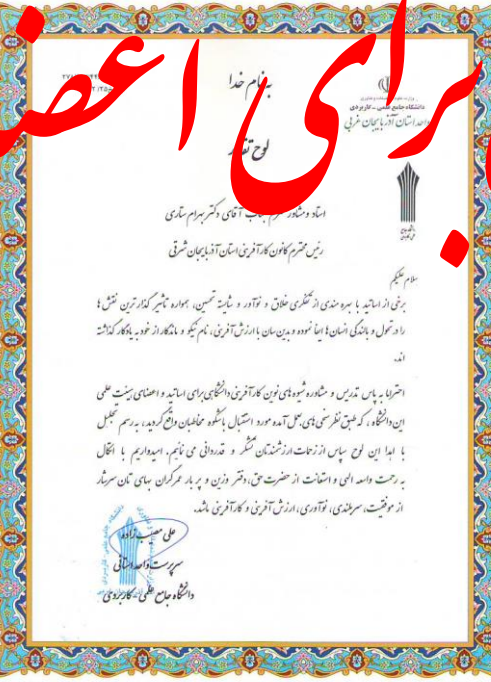 برای اعض
به نام خدا
دانشگاه جامع علمی - کاربردی
واحد استان آذربایجان غربی
لوح
استاد و مشاور آقای دکتر بهرام ستاری
رئیس محترم کانون کارآفرینی استان آذربایجان شرقی
سلام علیکم
برخی از اساتید با بهره مندی از تفکری خلاق و نوآور و شایسته تحسین، همواره تاثیر گذارترین نقش ها
را در تحول و بالندگی انسان ها ایفا نموده و بدین سان با ارزش آفرینی، نام نیکو و ماندگار از خود به یادگار گذاشته
اند.
احتراما به پاس تدریس و مشاوره شیوه های نوین کارآفرینی دانشگاهی برای اساتید و اعضای هیئت علمی
این دانشگاه، که طبق نظرسنجی های بعمل آمده مورد استقبال باشکوه مخاطبان واقع گردید، به رسم تجلیل
با اهدا این لوح سپاس از زحمات ارزشمندتان تشکر و قدردانی می نمائیم. امیدواریم با اتکال
به رحمت واسعه الهی و استعانت از حضرت حق، دفتر وزین و پر بار عمر گران بهای تان سرشار
از موفقیت، سربلندی، نوآوری، ارزش آفرینی و کارآفرینی باشد.
علی
سرپرست واحد استانی
دانشگاه جامع علمی - کاربردی